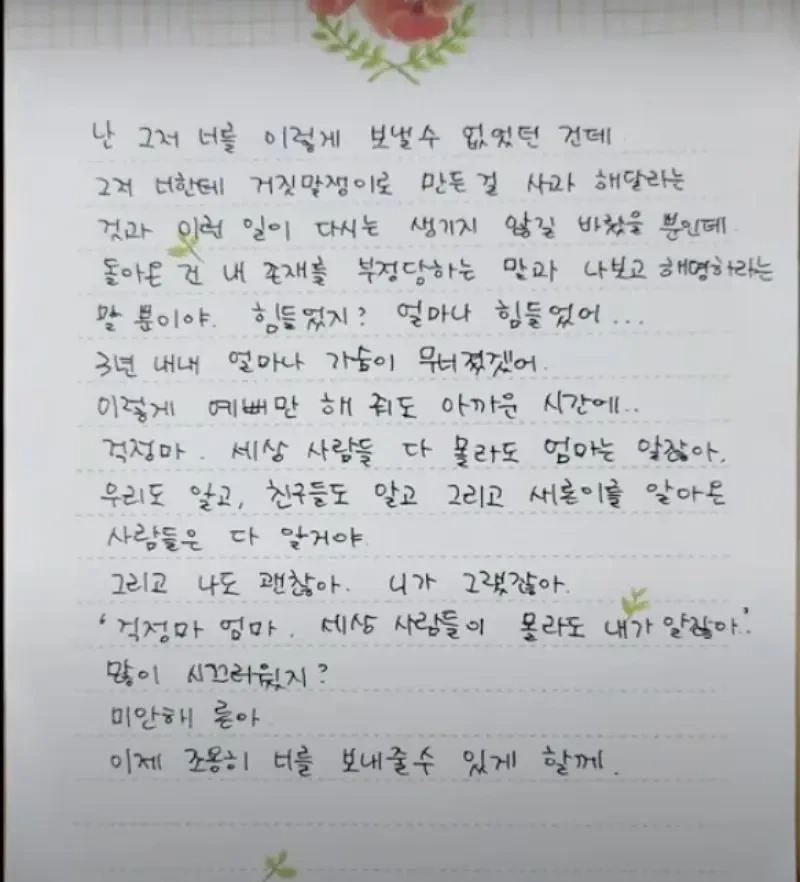 난 그저 너를 이렇게 보낼수 없었던 건데
그저 너한테 거짓말쟁이로 만든걸 사과 해달라는
것과 이런 일이 다시는 생기지 않길 바랬을 뿐인데
돌아온 건 내 존재를 부정당하는 말과 나보고 해명하라는
말 뿐이야. 힘들었지? 얼마나 힘들었어...
3년 내내 얼마나 가슴이 무너졌겠어.
이렇게 예뻐만 해 줘도 아까운 시간에..
걱정마. 세상 사람들 다 몰라도 엄마는 알잖아.
우리도 알고, 친구들도 알고 그리고 새론이를 알아온
사람들은 다 알거야
그리고 나도 괜찮아. 니가 그랬잖아.
'걱정마 엄마. 세상 사람들이 몰라도 내가 알잖아.'
많이 시끄러웠지?
미안해 론아
이제 조용히 너를 보내줄수 있게 할께.